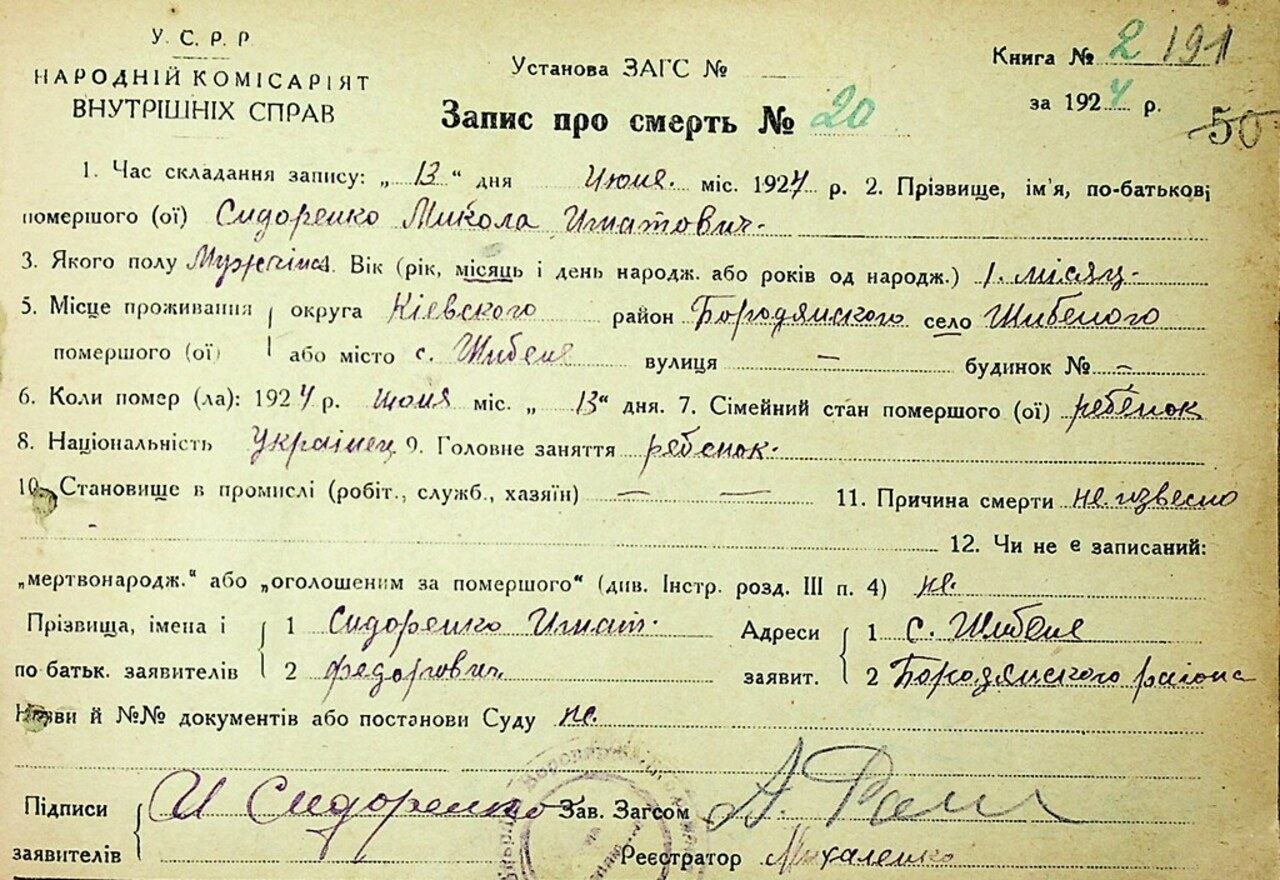 У. С. Р. Р.
НАРОДНІЙ КОМІСАРІЯТ
ВНУТРІШНІХ СПРАВ
Установа ЗАГС №
Запис про смерть № 20
Книга № 2 191
за 1924 р.
50
1. Час складання запису: „ 13 “ дня Июня. міс. 1924 р. 2. Прізвище, ім'я, по-батькові
помершого (ої) Сидоренко Микола Игнатович.
3. Якого полу Мужчіна 4. Вік (рік, місяць і день народж. або років од народж.) 1. місяц.
5. Місце проживання округа Кіевского район Бородянского село Шибеного
помершого (ої) або місто с. Шибене вулиця — будинок № —
6. Коли помер (ла): 1924 р. июня міс. „ 13“ дня. 7. Сімейний стан помершого (ої) ребёнок
8. Національність Українец 9. Головне заняття ребенок.
10. Становище в промислі (робіт., служб., хазяїн) — — 11. Причина смерти не извесно
12. Чи не є записаний:
„мертвонародж.“ або „оголошеним за помершого“ (див. Інстр. розд. III п. 4) не.
Прізвища, імена і 1 Сидоренко Игнат. Адреси 1 с. Шибене
по батьк. заявителів 2 Федорович заявит. 2 Бородянского района
Назви й №№ документів або постанови Суду не.
Підписи И Сидоренко Зав. Загсом А.
заявителів Реєстратор Михаленко